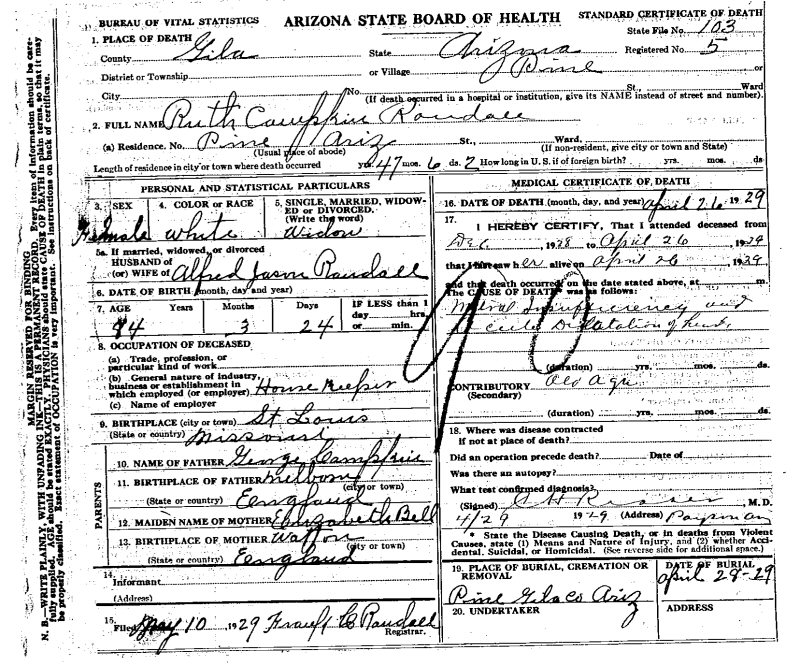 BUREAU OF VITAL STATISTICS ARIZONA STATE BOARD OF HEALTH STANDARD CERTIFICATE OF DEATH
State File No. 103
1. PLACE OF DEATH
County Gila State Arizona Registered No. 5
District or Township or Village Pine or
City No. St., Ward
(If death occurred in a hospital or institution, give its NAME instead of street and number).
2. FULL NAME Ruth Campkin Randall
(a) Residence. No. Pine Ariz St., Ward,
(Usual place of abode) (If non-resident, give city or town and State)
Length of residence in city or town where death occurred yrs. 47 mos. 6 ds. 2 How long in U. S. if of foreign birth? yrs. mos. ds
PERSONAL AND STATISTICAL PARTICULARS
3. SEX 4. COLOR or RACE 5. SINGLE, MARRIED, WIDOW-
ED or DIVORCED.
(Write the word)
Female white Widow
5a. If married, widowed, or divorced
HUSBAND of
(or) WIFE of Alfred Jason Randall
6. DATE OF BIRTH (month, day, and year)
7. AGE Years Months Days IF LESS than 1
day hrs.
or min.
84 3 24
8. OCCUPATION OF DECEASED
(a) Trade, profession, or
particular kind of work
(b) General nature of industry,
business or establishment in
which employed (or employer) House Keeper
(c) Name of employer
9. BIRTHPLACE (city or town) St Louis
(State or country) Missouri
PARENTS
10. NAME OF FATHER George Campkin
11. BIRTHPLACE OF FATHER Melborn
(city or town)
(State or country) Eengland
12. MAIDEN NAME OF MOTHER Elizabeth Bell
13. BIRTHPLACE OF MOTHER
(city or town)
(State or country) Eengland
14.
Informant
(Address)
15. Filed May 10 1929 Frank C Randall
Registrar.
MEDICAL CERTIFICATE OF DEATH
16. DATE OF DEATH (month, day, and year) April 26 1929
17.
I HEREBY CERTIFY, That I attended deceased from
Dec , 1928 to April 26 , 1929
that I last saw her alive on April 26 , 1929
and that death occurred, on the date stated above, at m.
The CAUSE OF DEATH was as follows:
90
Mitral Insufficiency and
acute Dilatation of heart
(duration) yrs. mos. ds.
CONTRIBUTORY Old Age
(Secondary)
(duration) yrs. mos. ds.
18. Where was disease contracted
if not at place of death?
Did an operation precede death? Date of
Was there an autopsy?
What test confirmed diagnosis?
(Signed) M.D.
4/29 1929 (Address) Payson
* State the Disease Causing Death, or in deaths from Violent
Causes, state (1) Means and Nature of Injury, and (2) whether Acci-
dental, Suicidal, or Homicidal. (See reverse side for additional space.)
19. PLACE OF BURIAL, CREMATION OR
REMOVAL
Pine Gila co Ariz
DATE OF BURIAL
April 28-29
20. UNDERTAKER ADDRESS
MARGIN RESERVED FOR BINDING
N. B.—WRITE PLAINLY, WITH UNFADING INK—THIS IS A PERMANENT RECORD. Every item of information should be care-
fully supplied. AGE should be stated EXACTLY. PHYSICIANS should state CAUSE OF DEATH in plain terms, so that it may
be properly classified. Exact statement of OCCUPATION is very important. See instructions on back of certificate.